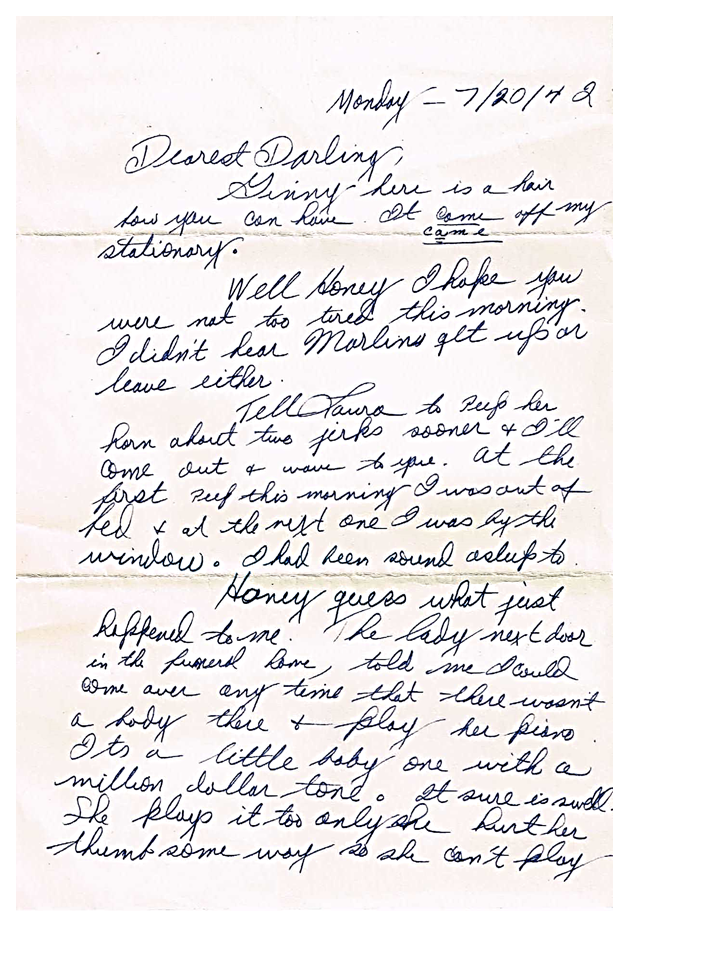 Monday — 7/20/42
Dearest Darling,
Ginny - here is a hair
bow you can have. It came off my
came
stationary.
Well Honey I hope you
were not too tired this morning.
I didn't hear Marlins get up or
leave either.
Tell Laura to Peep her
horn about two jerks sooner & I'll
come out & wave to you. At the
first Peep this morning I was out of
bed & at the next one I was by the
window. I had been sound asleep to.
Honey guess what just
happened to me. The lady next door
in the funeral home, told me I could
come over any time that there wasn't
a body there & play her piano.
Its a little baby one with a
million dollar tone. It sure is swell.
She plays it too only she hurt her
thumb some way so she can't play